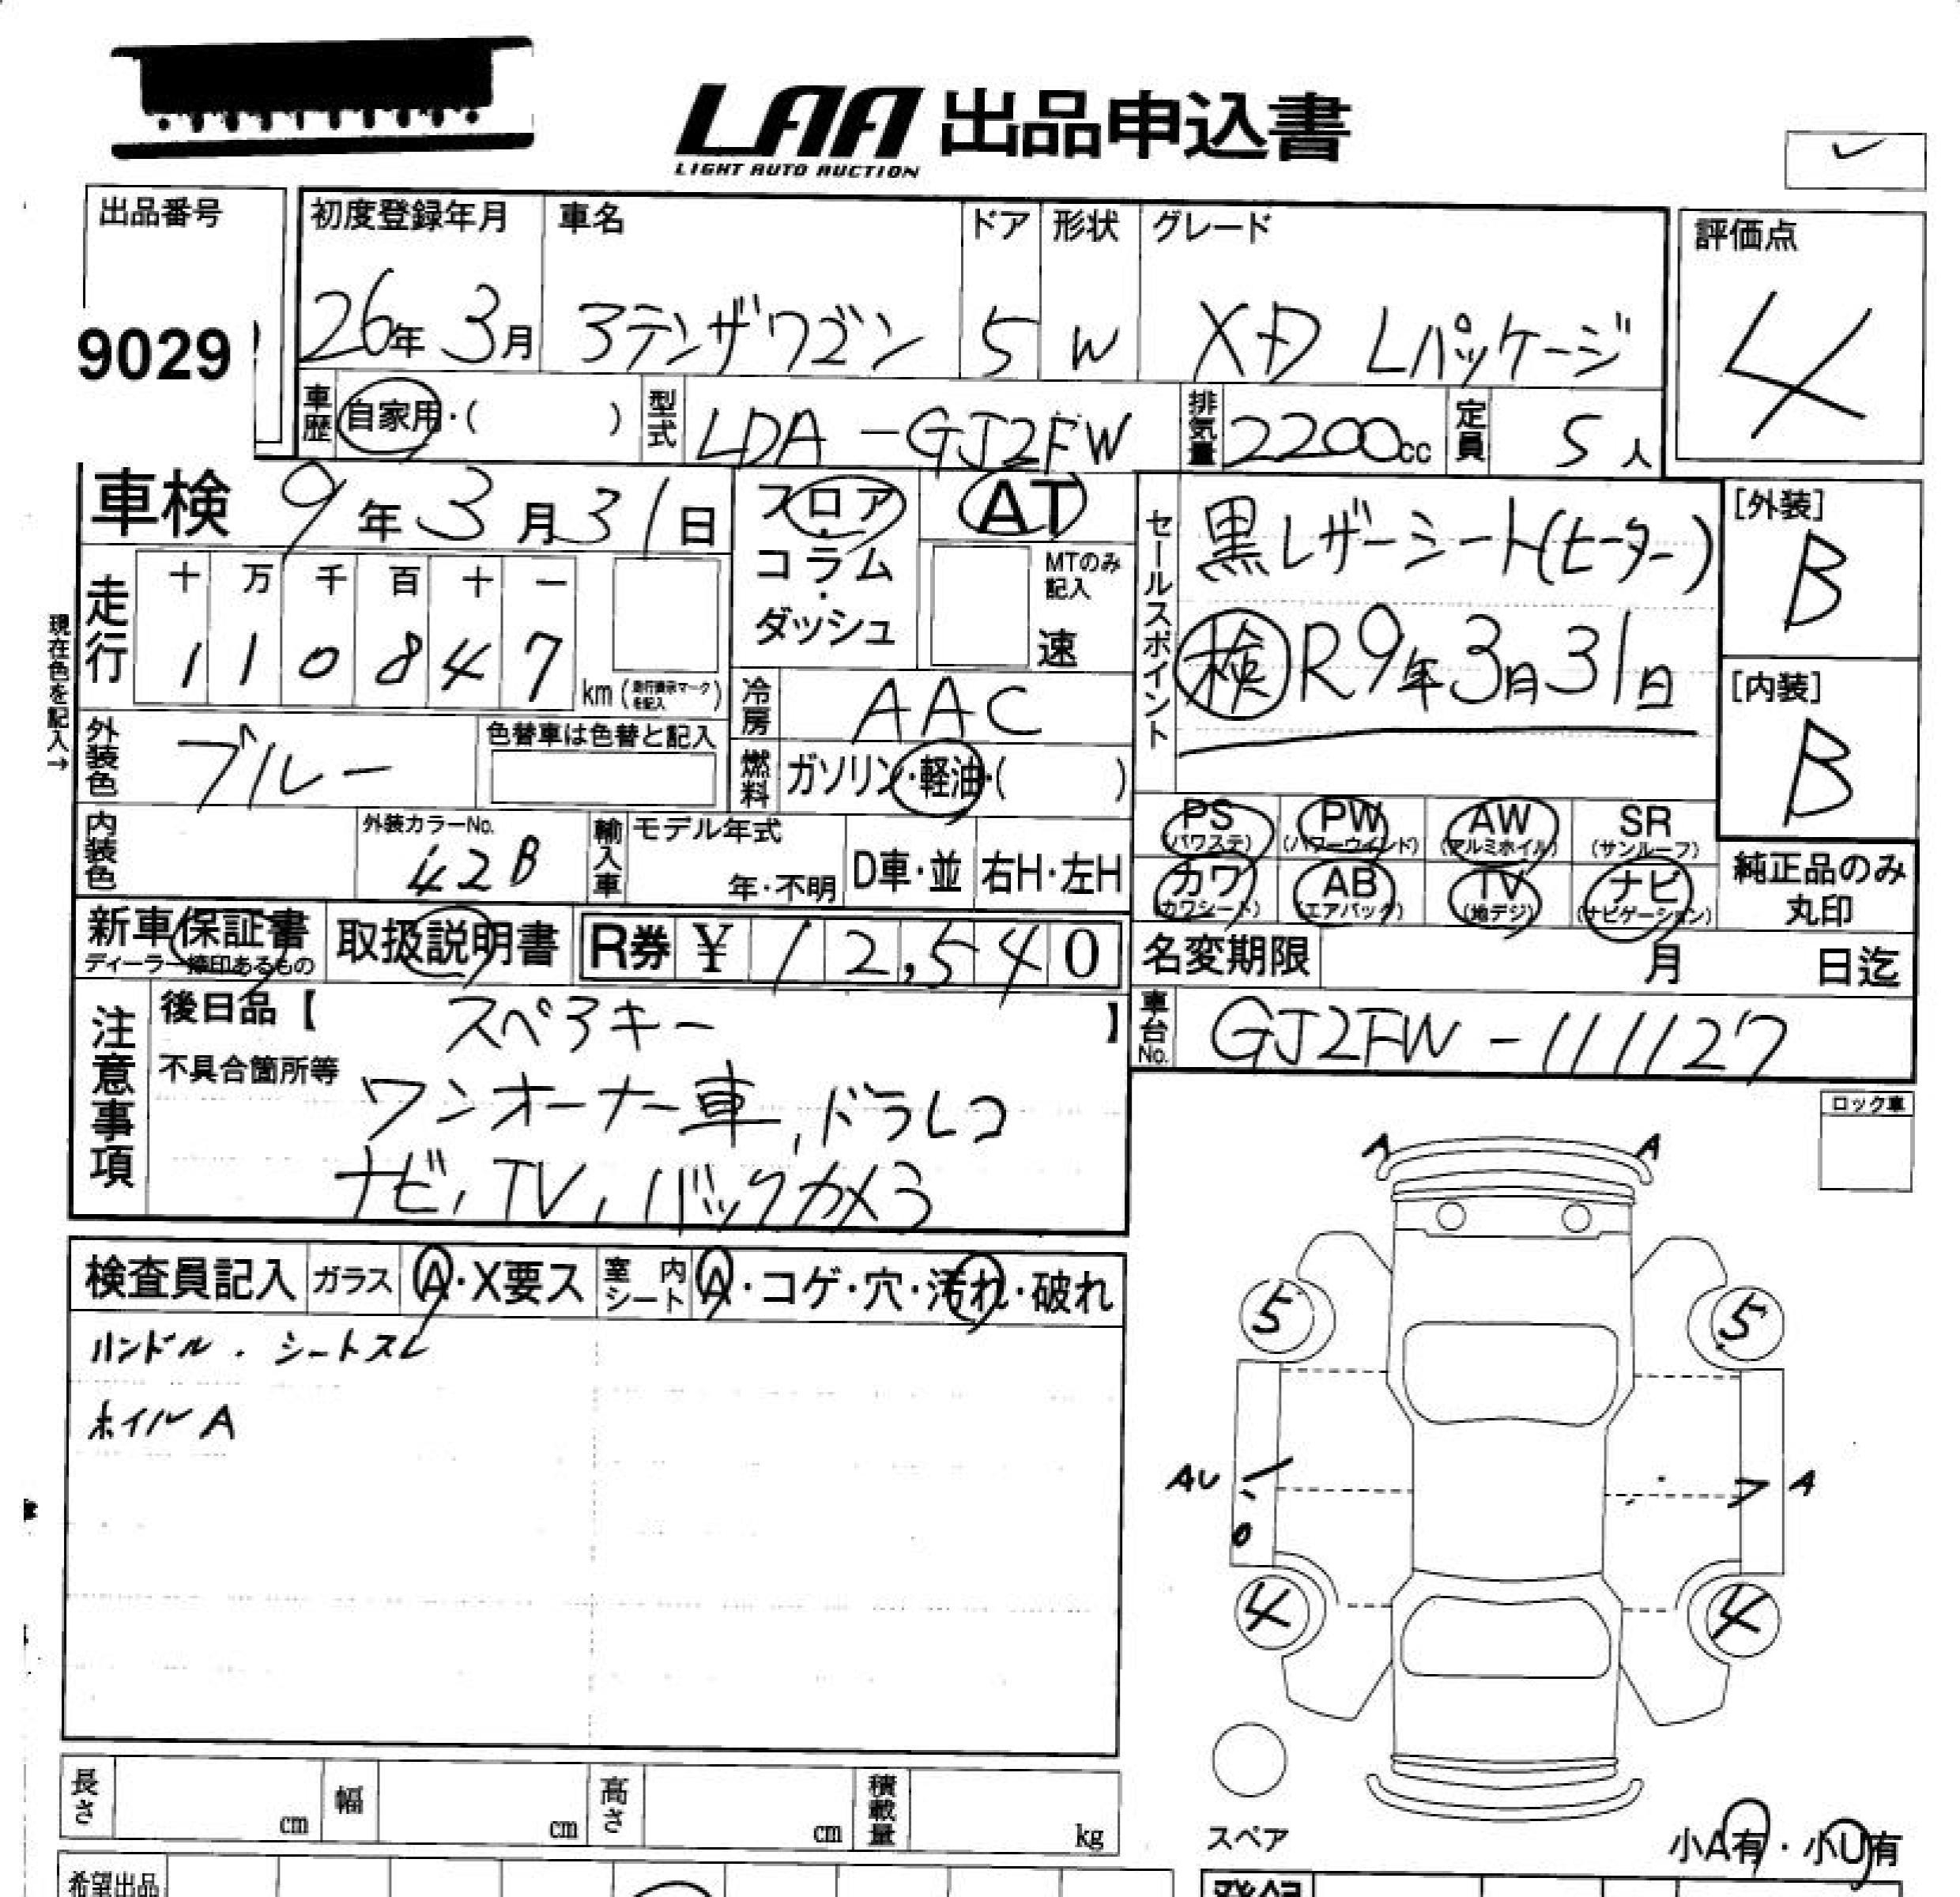 LAA 出品申込書
LIGHT AUTO AUCTION
出品番号
9029
初度登録年月 車名 ドア 形状 グレード
26年 3月 アテンザワゴン 5 W XD Lパッケージ
評価点
4
車歴 自家用・( ) 型式 LDA-GJ2FW 排気量 2200cc 定員 5人
車検 9年3月31日
フロア・コラム・ダッシュ
AT
MTのみ記入
速
セールスポイント
黒レザーシート(ヒーター)
検 R9年3月31日
[外装]
B
[内装]
B
現在色を記入→
走行 十 万 千 百 十 一
1 1 0 8 4 7 km (走行表示マークを記入)
冷房 AAC
外装色 ブルー 色替車は色替と記入
燃料 ガソリン・軽油・( )
内装色 外装カラーNo. 42B
輸入車 モデル年式 年・不明 D車・並 右H・左H
PS (パワステ) PW (パワーウインド) AW (アルミホイル) SR (サンルーフ)
カワ (カワシート) AB (エアバック) TV (地デジ) ナビ (ナビゲーション)
純正品のみ
丸印
新車保証書 取扱説明書 R券 ¥ 12,540
ディーラー捺印あるもの
名変期限 月 日迄
注意事項
後日品【 スペアキー 】
車台No. GJ2FW-111127
不具合箇所等
ワンオーナー車,ドラレコ
ナビ, TV, バックカメラ
ロック車
A A
検査員記入 ガラス A・X要ス 室内シート A・コゲ・穴・汚れ・破れ
ハンドル・シートスレ
ホイルA
5 5
AU A
4 4
長さ cm 幅 cm 高さ cm 積載量 kg
スペア
小A有・小U有
希望出品